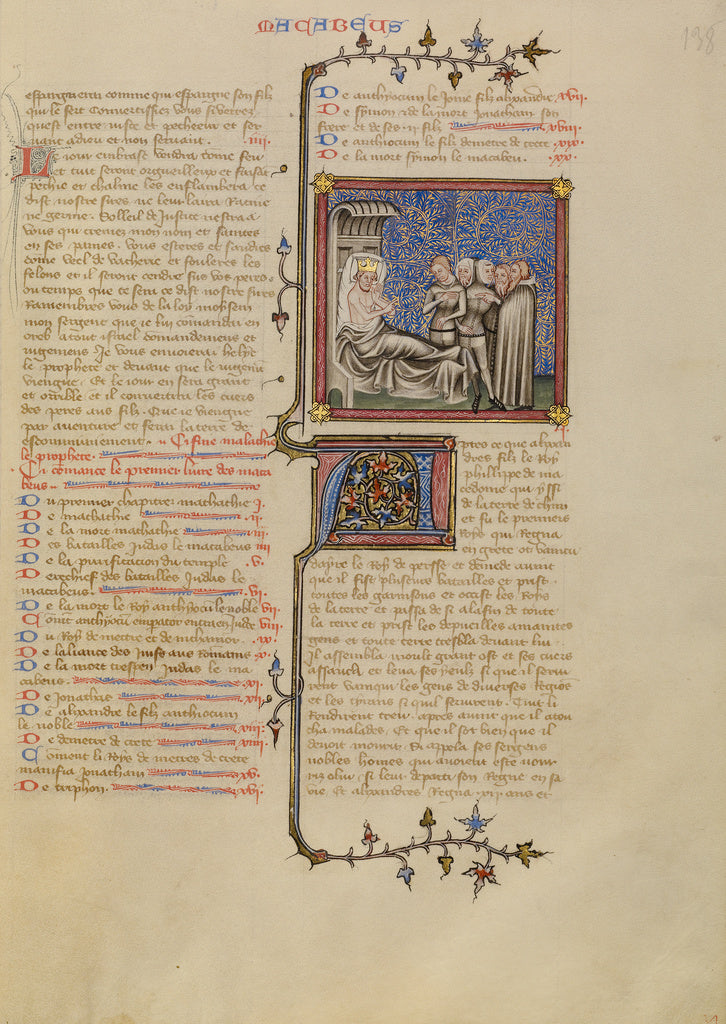 MACABEUS
138
espargneray comme qui espargne son filz
qui le sert Convertissiez vous si verrez
quest entre juste et pecheeur et ser
vant a dieu et non servant . iiii.
Le jour embrase vendra come feu
et tuit seront orgueilleux et faisāt
pechie et chalme les enflambera ce
dist nostre sires ne leur laira Racine
ne germe. Solleil de Justice nestra a
vous qui cremez mon nom et saintes
en ses pennes. vous esteres et saudres
come veel de vacherie et foulerez les
felons et il seront cendre sus vos piez
ou temps que ce sera ce dist nostre sires
Ramembres vous de la loy moysem
mon sergent que je luy comanday en
oreb a tout israel comandemens et
jugemens Je vous envoierai helye
le prophete et devant que le jugemt
viengne. Et le jour en sera grant
et orrible et il convertira les cuers
des peres aus filz. Que je viengne
par aventure et ferai la terre de
escommuniement. Ci fine malachie
le prophete.
Ci comance le premier livre des maca
beus
Du premier chapitre mathathie I.
De mathathie .ii.
De la mort mathathie .iii.
Des batailles Judas le macabeus iiii
De la purificacion du temple .v.
Derechief des batailles Judas le
macabeus. .vi.
De la mort le Roy anthyocu le noble vii.
Coment anthyocu empator entra en Jude viii.
Du Roy demetre et de nichanor.
De laliance des Juifs aus Romains .x.
De la mort trespou Judas le ma
cabeus. .xi.
De Jonathas .xii.
De alixandre le filz anthiocum
le noble .xiii.
De demetre de crete .xiiii.
Coment li Roys demetres de crete
manisia Jonathan .xv.
De triphon. .xvi.
De anthyocum le Jone filz alixandre xvii.
De symon & de la mort Jonathan son
frere et de ses .ii. filz xviii.
De anthiocum le filz demetre de crete .xix.
De la mort symon le macabeu. .xx.
I.
Apres ce que alixan
dres filz le Roy
phillippe de ma
cedoine qui yssi
de la terre de cthim
et fu le premiers
Roys qui Regna
en grece ot vaincu
dayre le Roy de persse et demede avint
que il fist plusieurs batailles et prist
toutes les garnisons et occist les Roys
de la terre et passa de si a la fin de toute
la terre et prist les depueilles a maintes
gens et toute terre tressilla devant lui.
Il assembla moult grant ost et ses cuers
essaucha et leva ses yeulz si que il seru
rent vainqui les gens de diverses Regiōs
et les tyrans si quil servirent. Tuit li
Rendirent treu. apres avint que il acou
cha malades. Et que il sot bien que il
devoit mourir. Si apela ses sergens
nobles homes qui avoient este nour
riz o lui si leur departi son Regne en sa
vie. Et alixandres Regna .xii. ans et